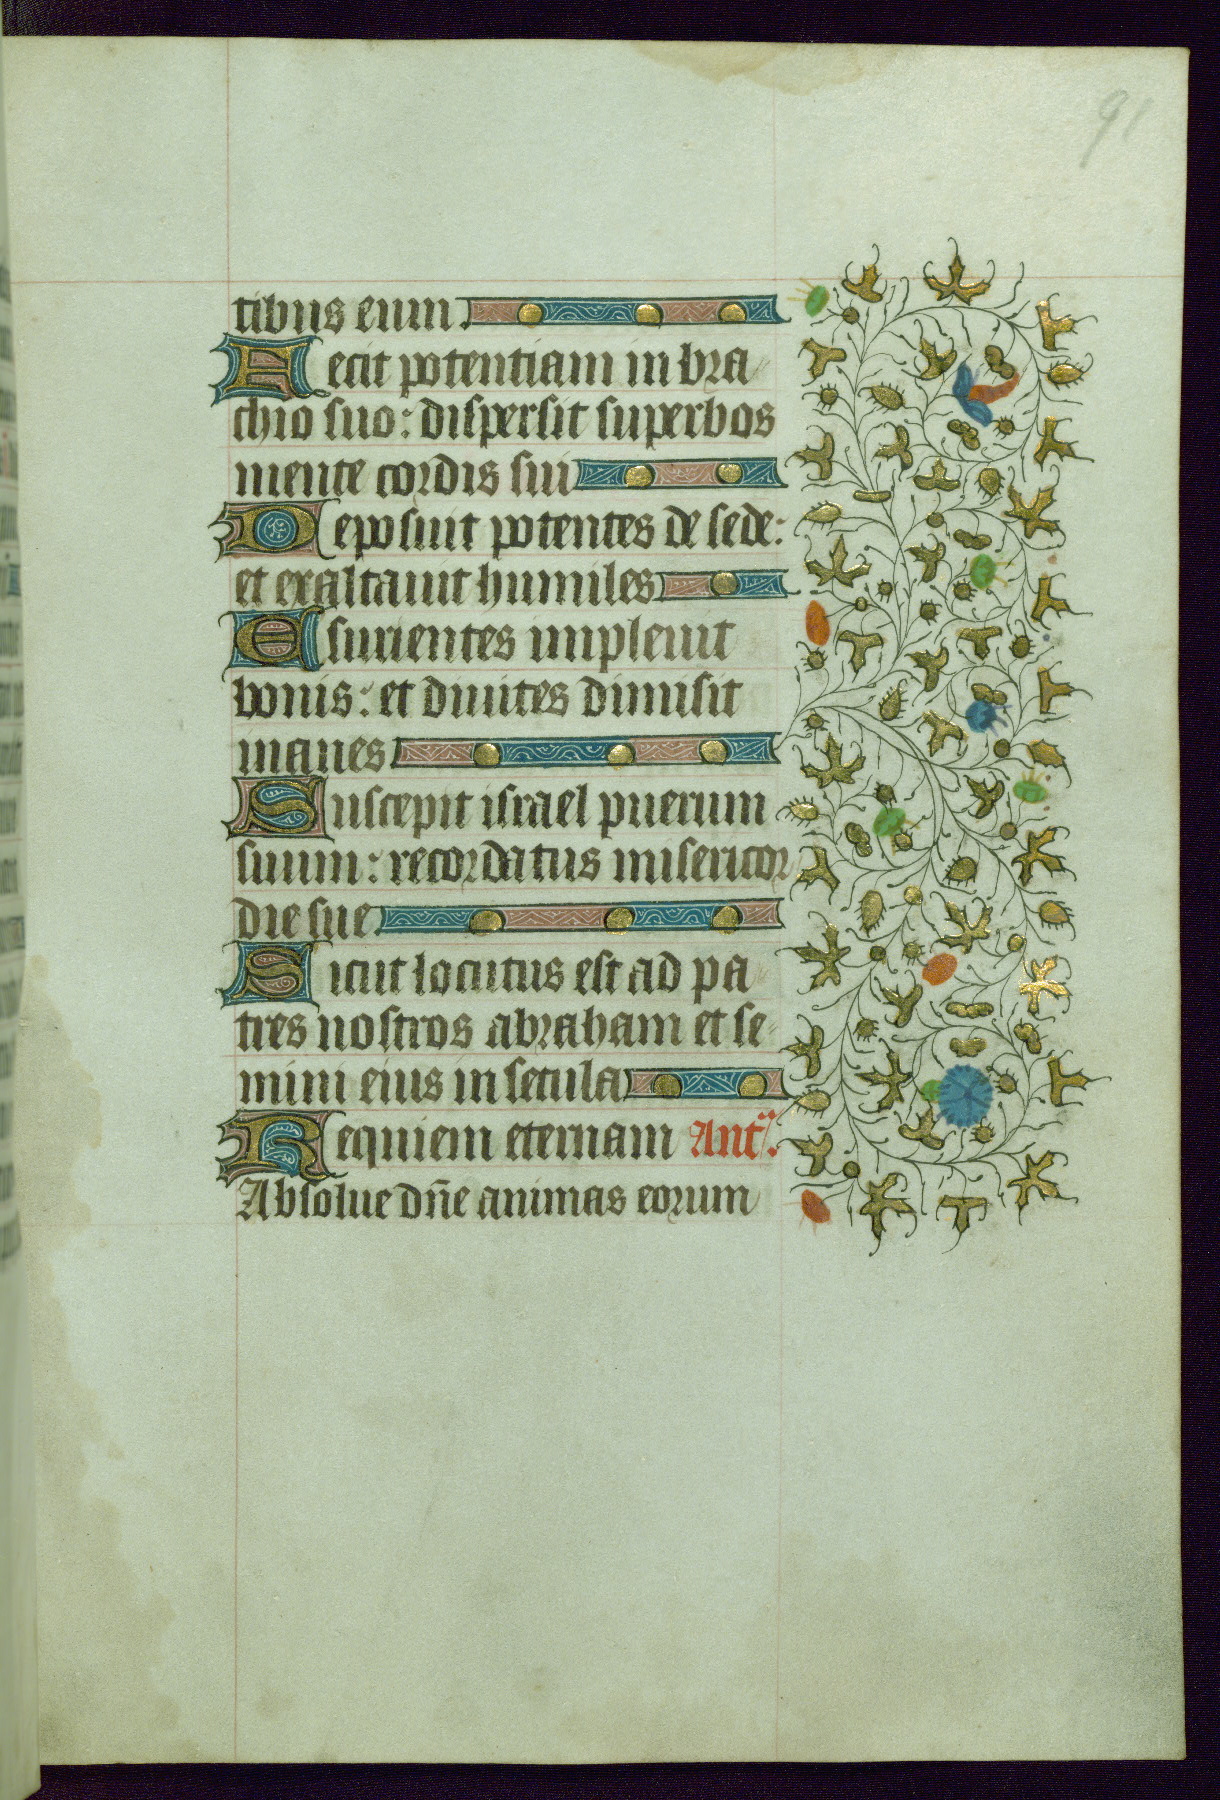 91
tibus eum.
Fecit potentiam in bra
chio suo: dispersit superbos
mente cordis sui
Deposuit potentes de sede:
et exaltauit humiles
Esurientes impleuit
bonis: et diuites dimisit
inanes
Suscepit israel puerum
suum: recordatus misericor
die sue.
Sicut locutus est ad pa
tres nostros abraham et se-
mini eius in secula
Requiem eternam Añt.
Absolue dñe animas eorum